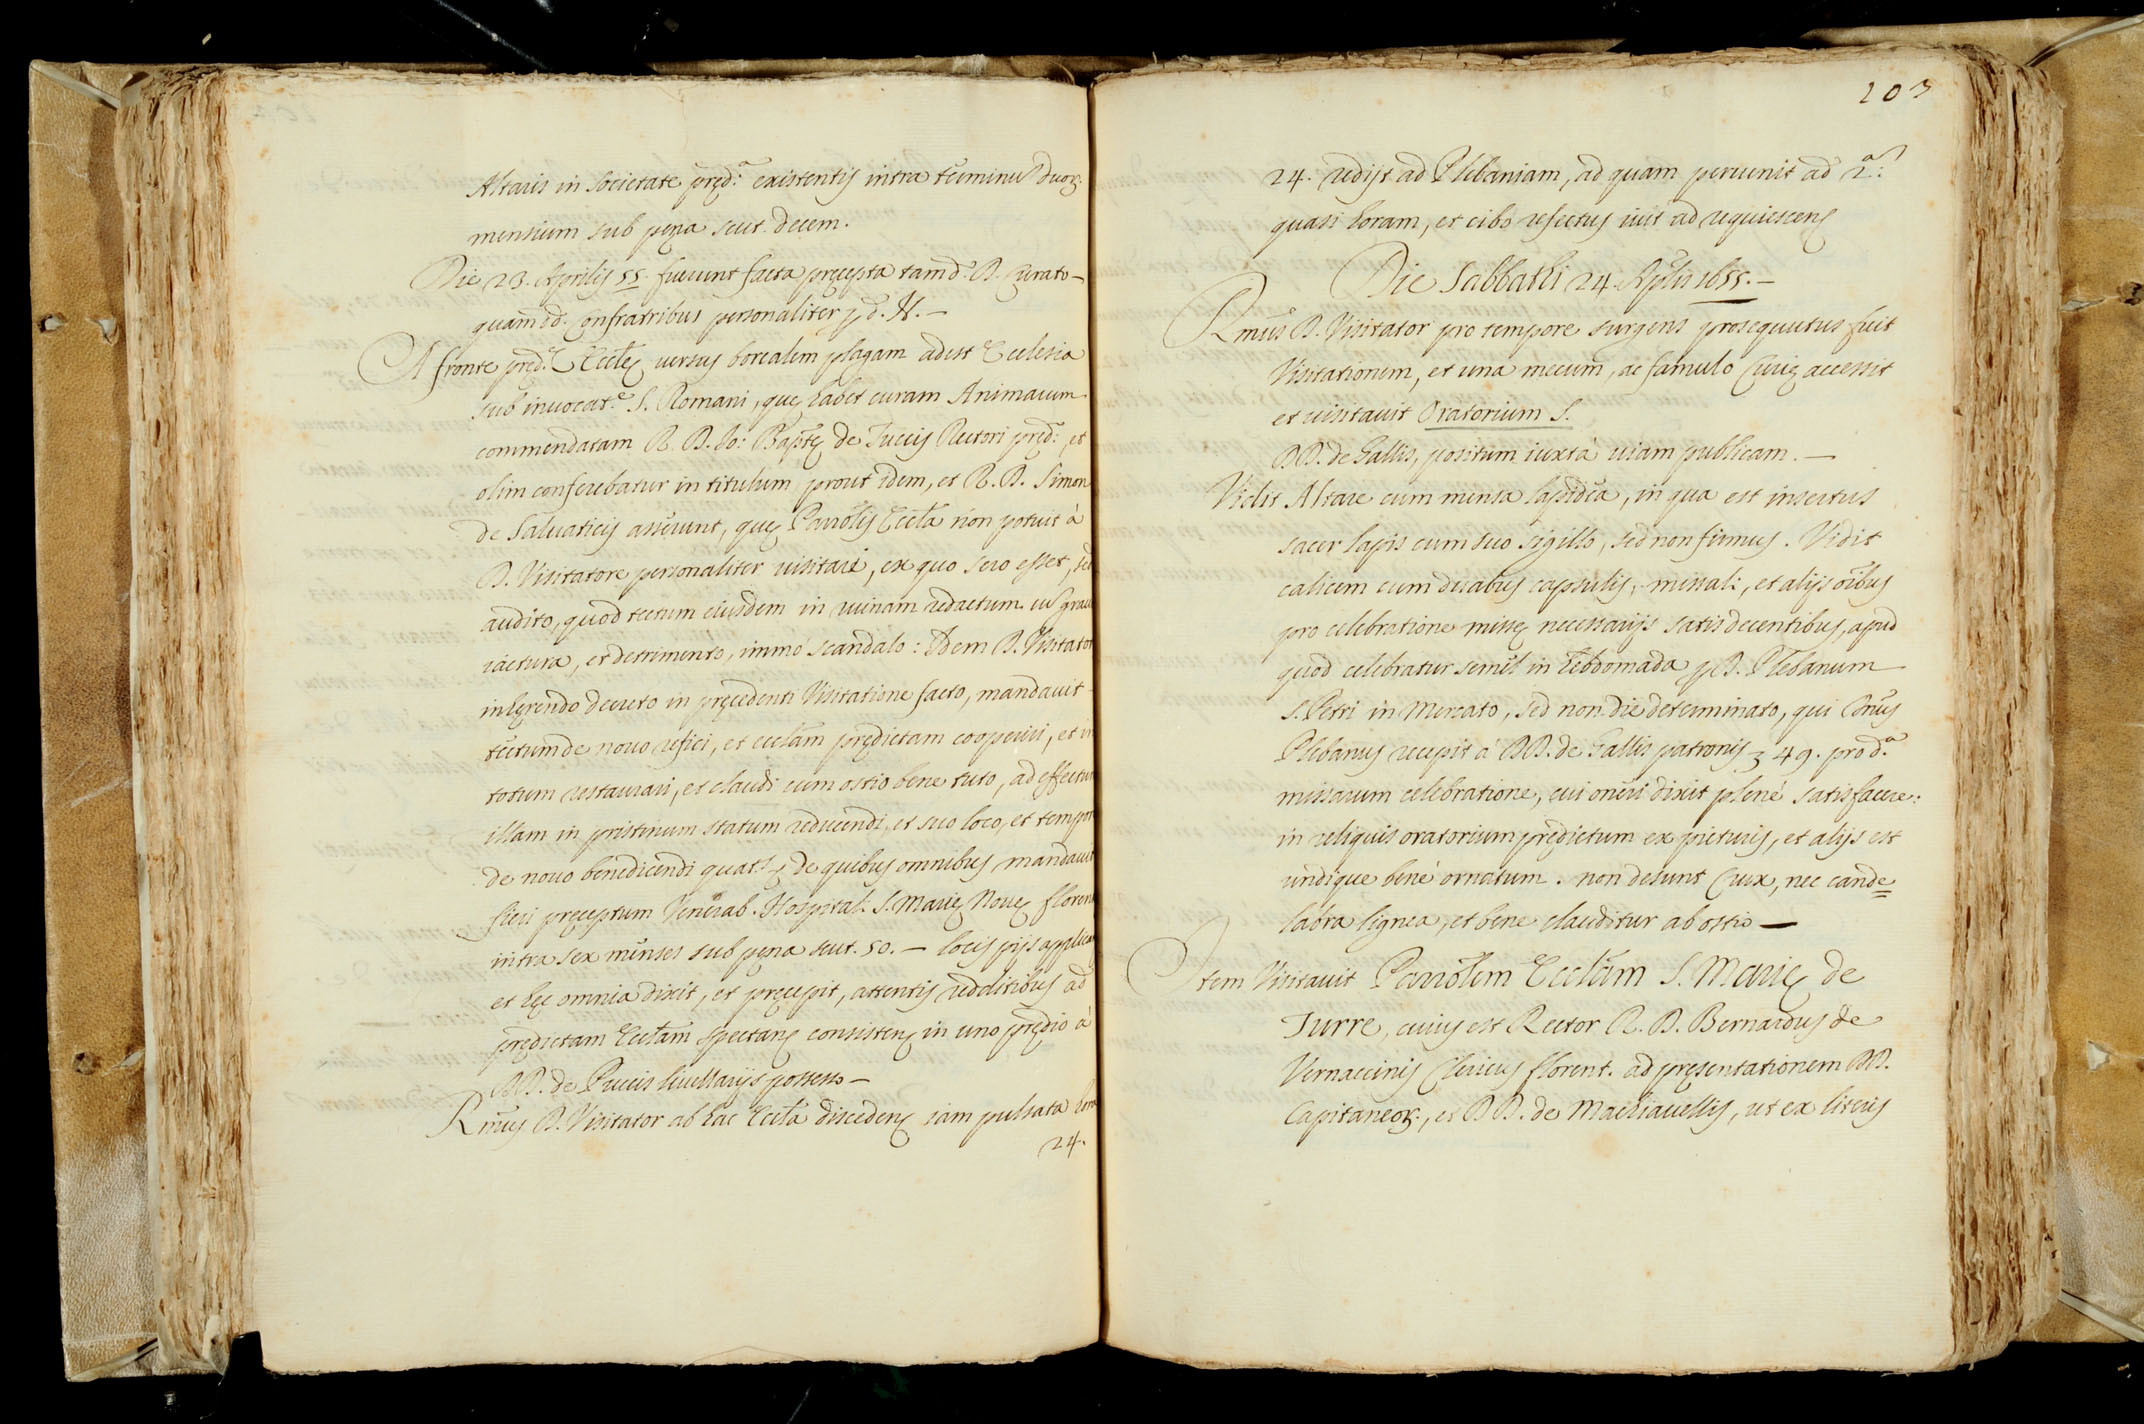 Altaris in societate pręd.ª existentis intra terminu duor.
mensium sub pęna scut. decem.
Die 23. Aprilis 55. fuerunt facta pręcepta tam d.º D. Curato
quam dd. Confratribus personaliter p d. N. —
A fronte pręd.ę Ecclę versus borealem plagam adest Ecclesia
sub invocat.e S. Romani, quę habet curam Animarum
commendatam R. D. Jo: Baptę de Tuccis Rectori pręd:, et
olim conferebatur in titulum prout idem, et R. D. Simon
de Saluaticis asserunt, quę Parrolis Eccla non potuit à
D. Visitatore personaliter visitari, ex quo sero esset, sed
audito, quod tectum eiusdem in ruinam redactum cu graui
iactura, et detrimento, immo scandalo: Idem D. Visitator
inhęrendo decreto in pręcedenti Visitatione facto, mandauit
tectum de nouo refici, et ecclam prędictam cooperiri, et in
totum restaurari, et claudi cum ostio bene tuto, ad effectum
illam in pristinum statum reducendi, et suo loco, et tempore
de nouo benedicendi quat.s, de quibus omnibus mandauit
fieri pręceptum Venerab. Hospital. S. Marię Nouę floren
intra sex menses sub pęna scut. 50. — locis pijs applican
et hęc omnia dixit, et pręcepit, attentis redditibus ad
prędictam Ecclam spectan consisten in uno prędio à
DD. de Puccis liuellarijs possesso —
Rmus D. Visitator ab hac Eccla discedens iam pulsata hora
24.
203
24. redijt ad Plebaniam, ad quam peruenit ad 2.ª:
quasi horam, et cibo refectus iuit ad requiescens
Die Sabbathi 24. Aplis 1655. —
Rmus D. Visitator pro tempore surgens prosequutus fuit
Visitationem, et una mecum, ac famulo Curię accessit
et visitauit Oratorium S.
DD. de Gallis, positum iuxtà uiam publicam. —
Vidit Altare cum mensa lapidea, in qua est insertus
sacer lapis cum suo sigillo, sed non firmus. Vidit
calicem cum duabus capsulis, missali, et alijs oibus
pro celebratione missę necessarijs satis decentibus, apud
quod celebratur semel in hebdomada p D. Plebanum
S. Petri in Mercato, sed non die determinato, qui Dnus
Plebanus recepit à DD. de Gallis patronis 49. pro d.ª
missarum celebratione, cui oneri dixit plenè satisfacere:
in reliquis oratorium prędictum ex picturis, et alijs est
undique benè ornatum. non desunt Crux, nec cande=
labra lignea, et bene clauditur ab ostio —
Item Visitauit Parrolem Ecclam S. Marię de
Turre, cuius est Rector R. D. Bernardus de
Vernaccinis Clericus florent. ad pręsentationem DD.
Capitaneor., et DD. de Machiauellis, ut ex literis